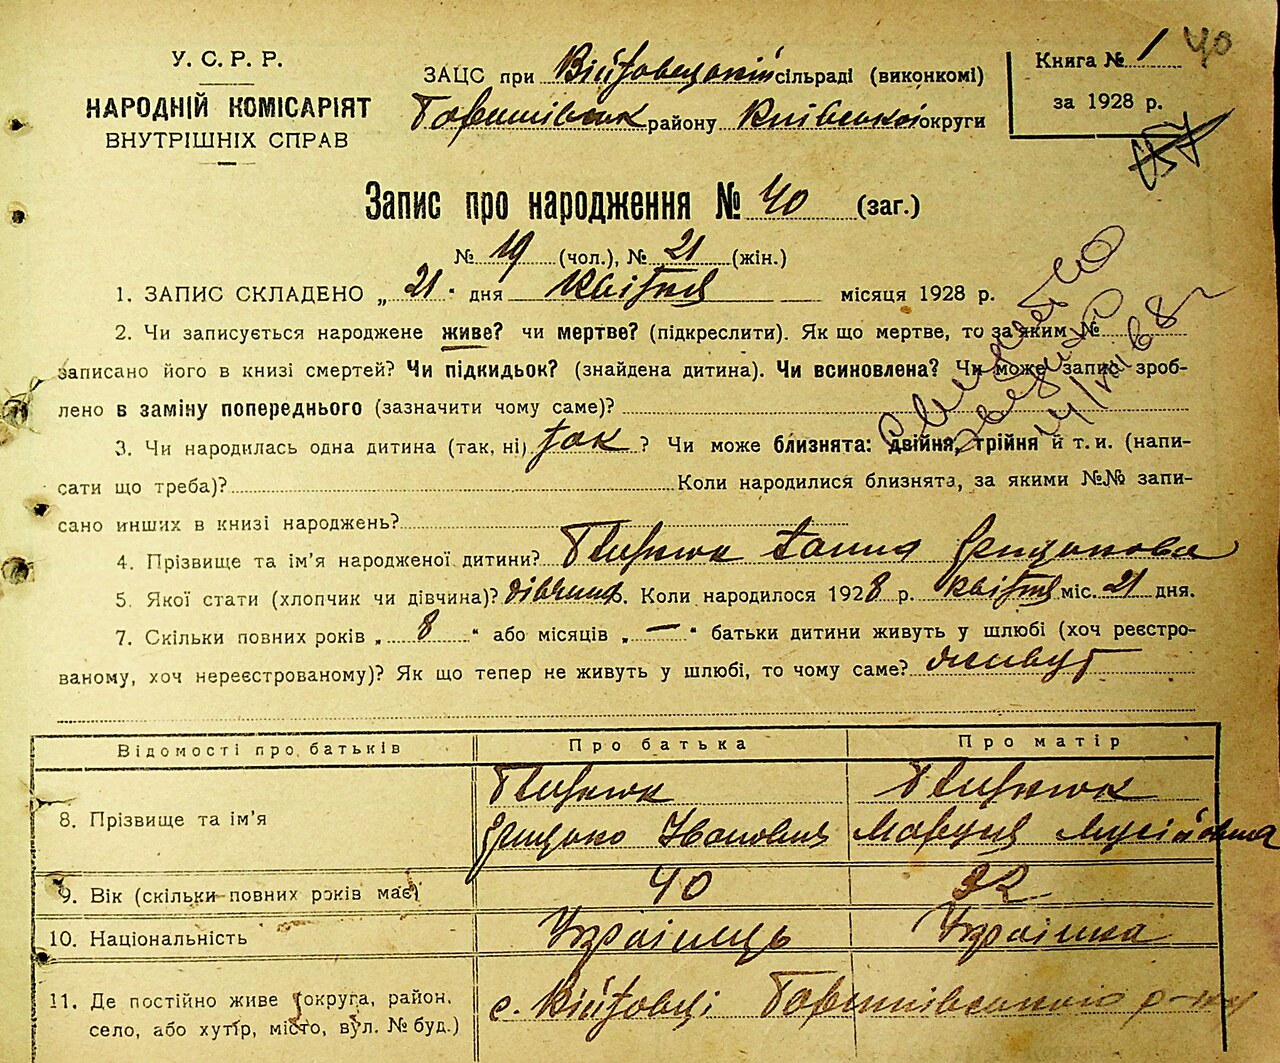 У. С. Р. Р.
НАРОДНІЙ КОМІСАРІЯТ
ВНУТРІШНІХ СПРАВ
ЗАЦС при Війтовецькій сільраді (виконкомі)
району Київської округи
Книга № 1 40
за 1928 р.
Запис про народження № 40 (заг.)
№ 19 (чол.), № 21 (жін.)
1. ЗАПИС СКЛАДЕНО „ 21 " дня Квітня місяця 1928 р.
2. Чи записується народжене живе? чи мертве? (підкреслити). Як що мертве, то за яким №
записано його в книзі смертей? Чи підкидьок? (знайдена дитина). Чи всиновлена? Чи може запис зроб-
лено в заміну попереднього (зазначити чому саме)?
3. Чи народилась одна дитина (так, ні) так ? Чи може близнята: двійня, трійня й т. и. (напи-
сати що треба)? Коли народилися близнята, за якими №№ запи-
сано инших в книзі народжень?
4. Прізвище та ім'я народженої дитини? Ганна
5. Якої стати (хлопчик чи дівчина)? дівчина 6. Коли народилося 1928 р. квітня міс. 21 дня.
7. Скільки повних років „ 8 " або місяців „ — " батьки дитини живуть у шлюбі (хоч реєстро-
ваному, хоч нереєстрованому)? Як що тепер не живуть у шлюбі, то чому саме? живут
Відомості про батьків Про батька Про матір
8. Прізвище та ім'я
Грицько Іванович Марія Мусіївна
9. Вік (скільки повних років має) 40 32
10. Національність Українець Українка
11. Де постійно живе (округа, район, с. Війтовці
село, або хутір, місто, вул. № буд.)